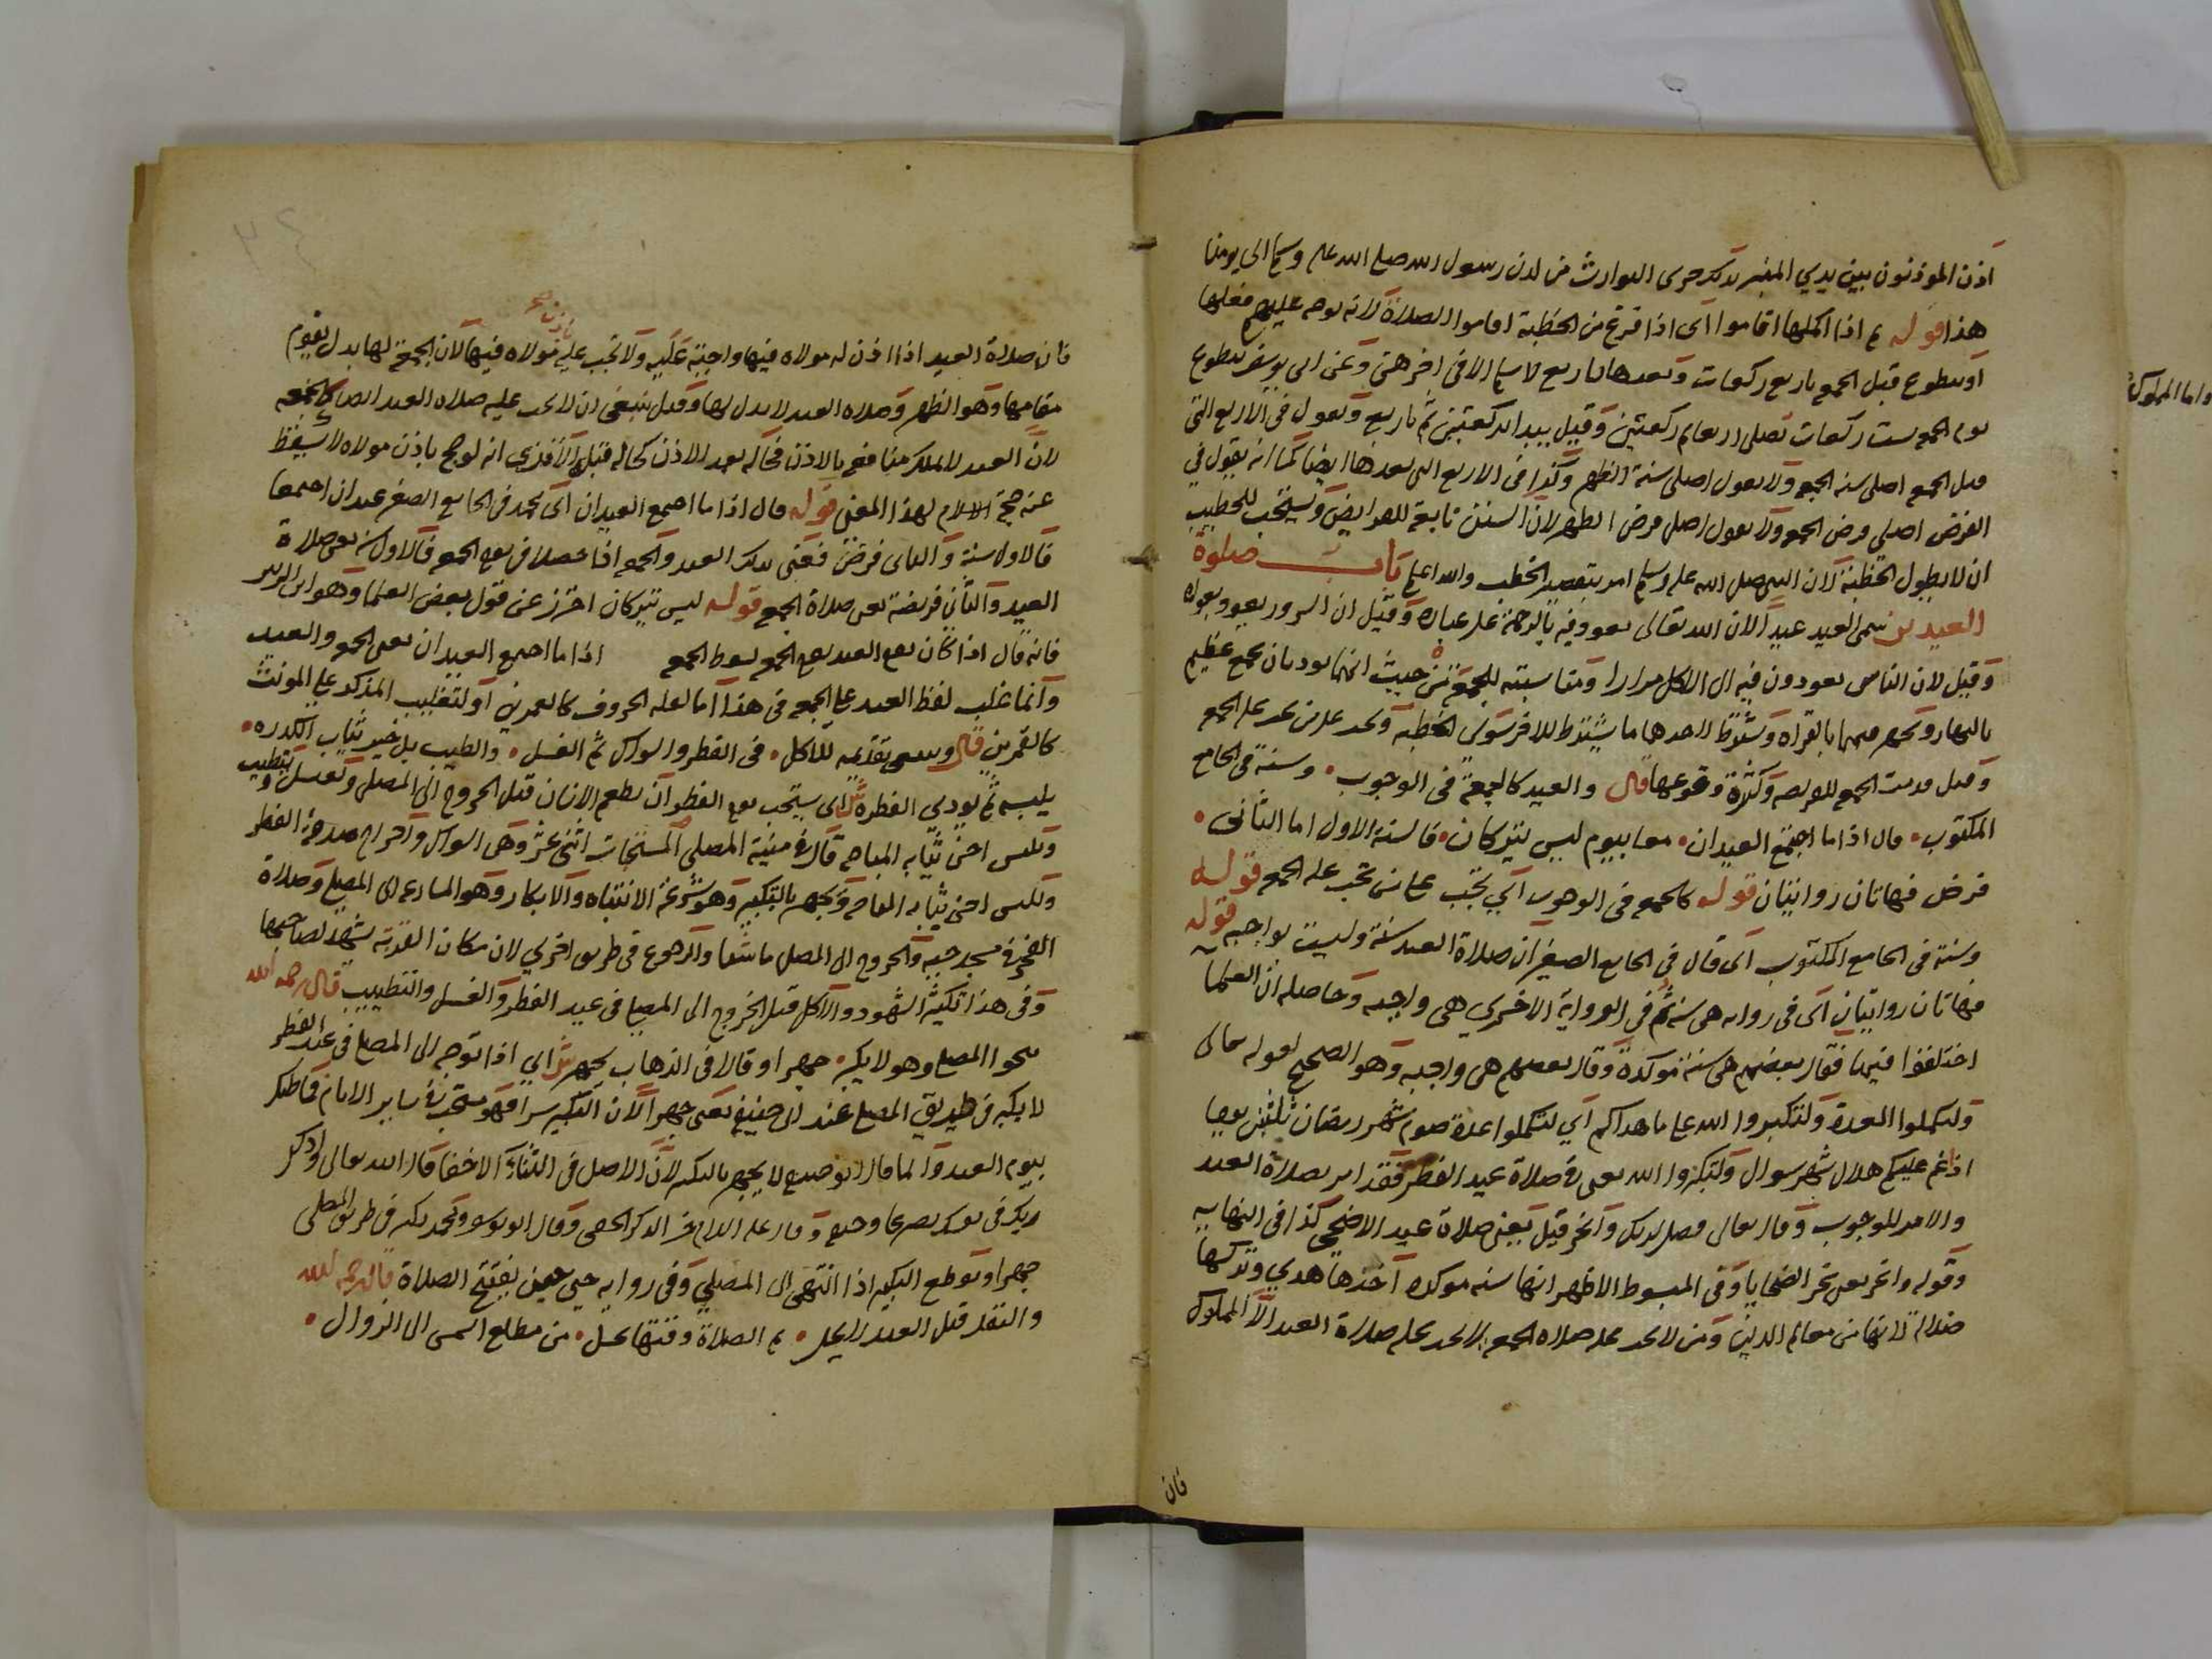 اذن الموذنون بين يدي المنبر بذلك جرى التوارث من لدن رسول الله صلى الله عليه وسلم الى يومنا
هذا قوله ثم اذا اكملها اقاموا اي اذا فرغ من الخطبة اقاموا الصلاة لانه توجه عليهم فعلها
او يتطوع قبل الجمعة باربع ركعات وبعدها باربع لا يسلم الا في اخرهن وعن ابي يوسف يتطوع
يوم الجمعة ست ركعات تصلى اربعا ثم ركعتين وقيل يبدا بركعتين ثم باربع وتقول في الاربع التي
قبل الجمعة اصلي سنة الجمعة ولا يقول اصلي سنة الظهر وكذا في الاربع التي بعدها ايضا كما انه يقول في
الفرض اصلي فرض الجمعة ولا يقول اصلي فرض الظهر لان السنن تابعة للفرايض ويستحب للخطيب
ان لا يطول الخطبة لان النبي صلى الله عليه وسلم امر بتقصير الخطب والله اعلم باب صلوة
العيدين سمي العيد عيدا لان الله تعالى يعود فيه بالرحمة على عباده وقيل ان السرور يعود بعوده
وقيل لان الناس يعودون فيه الى الاكل مرارا ومناسبته للجمعة من حيث انهما يوديان بجمع عظيم
بالنهار ويجهر فيهما بالقراة ويشترط لاحدهما ما يشترط للاخر سوى الخطبة وتجب على من تجب عليه الجمعة
وقيل قدمت الجمعة للفرضية وكثرة وقوعها قال والعيد كالجمعة في الوجوب وسنة في الجامع
المكتوب قال اذا ما اجتمع العيدان معا بيوم ليس يتركان فالسنة الاول اما الثاني
فرض فهاتان روايتان قوله كالجمعة في الوجوب اي تجب على من تجب عليه الجمعة قوله
وسنة في الجامع المكتوب اي قال في الجامع الصغير ان صلاة العيد سنة وليست بواجبة قوله
فهاتان روايتان اي في رواية هي سنة ثم في الرواية الاخرى هي واجبة وحاصله ان العلما
اختلفوا فيها فقال بعضهم هي سنة موكدة وقال بعضهم هي واجبة وهو الصحيح لقوله تعالى
ولتكملوا العدة ولتكبروا الله على ما هداكم اي لتكملوا عدة صوم شهر رمضان ثلثين يوما
اذا غم عليكم هلال شهر شوال ولتكبروا الله يعني في صلاة عيد الفطر فقد امر بصلاة العيد
والامر للوجوب وقال تعالى فصل لربك وانحر قيل يعني صلاة عيد الاضحى كذا في النهاية
وقوله وانحر يعني نحر الضحايا وفي المبسوط الاظهر انها سنة موكدة اخذها هدي وتركها
ضلالة لانها من معالم الدين ومن لا تجب عليه صلاة الجمعة لا تجب عليه صلاة العيد الا المملوك
فان
واما المملوك
فان صلاة العيد اذا اذن له مولاه فيها واجبة عليه ولا تجب عليه باذن مولاه فيها لان الجمعة لها بدل يقوم
مقامها وهو الظهر وصلاة العيد لا بدل لها وقيل ينبغي ان لا تجب عليه صلاة العيد ايضا كالجمعة
لان العبد لا يملك منافعه بالاذن فحاله بعد الاذن كحاله قبله الا ترى انه لو حج باذن مولاه لا يسقط
عنه حجة الاسلام لهذا المعنى قوله قال اذا ما اجتمع العيدان اي محمد في الجامع الصغير عيدان اجتمعا
فالاول سنة والثاني فرض فعنى بذلك العيد والجمعة اذا حصلا في يوم الجمعة فالاول سنة يعني صلاة
العيد والثاني فريضة يعني صلاة الجمعة قوله ليس يتركان احترز عن قول بعض العلما وهو ابن الزبير
فانه قال اذا كان يوم العيد يوم الجمعة يسقط الجمعة اذا ما اجتمع العيدان يعني الجمعة والعيد
وانما غلب لفظ العيد على الجمعة في هذا اما لقلة الحروف كالعمرين او لتغليب المذكر على المونث
كالقمرين قال وسن تقديمه للاكل في الفطر والسواك ثم الغسل والطيب بل خير ثياب الكدره
يلبسه ثم يودي الفطرة ش اي يستحب يوم الفطر ان يطعم الانسان قبل الخروج الى المصلى ويغتسل ويتطيب
ويلبس احسن ثيابه المباحة قال في منية المصلي المستحبات اثنى عشر وهي السواك واخراج صدقة الفطر
ولبس احسن ثيابه المباحة ويجهر بالتكبير وهو سرعة الانتباه والابكار وهو المسارعة الى المصلى وصلاة
الفجر في مسجد حيه والخروج الى المصلى ماشيا والرجوع في طريق اخرى لان مكان القربة يشهد لصاحبها
وفي هذا تكثير الشهود والاكل قبل الخروج الى المصلى في عيد الفطر والغسل والتطييب قال رحمه الله
نحو المصلى وهو لا يكبر جهرا وقالا في الذهاب يجهر ش اي اذا توجه الى المصلى في عيد الفطر
لا يكبر في طريق المصلى عند ابي حنيفة يعني جهرا لان التكبير سرا فهو مستحب في ساير الايام فما ظنك
بيوم العيد وانما قال ابو حنيفة لا يجهر بالتكبير لان الاصل في الثناء الاخفا قال الله تعالى واذكر
ربك في نفسك تضرعا وخيفة وقال عليه السلام خير الذكر الخفي وقال ابو يوسف ومحمد يكبر في طريق المصلى
جهرا ويقطع التكبير اذا انتهى الى المصلى وفي رواية حتى يفتتح الصلاة قال رحمه الله
والتنفل قبل العيد ثم الصلاة وقتها من مطلع الشمس الى الزوال